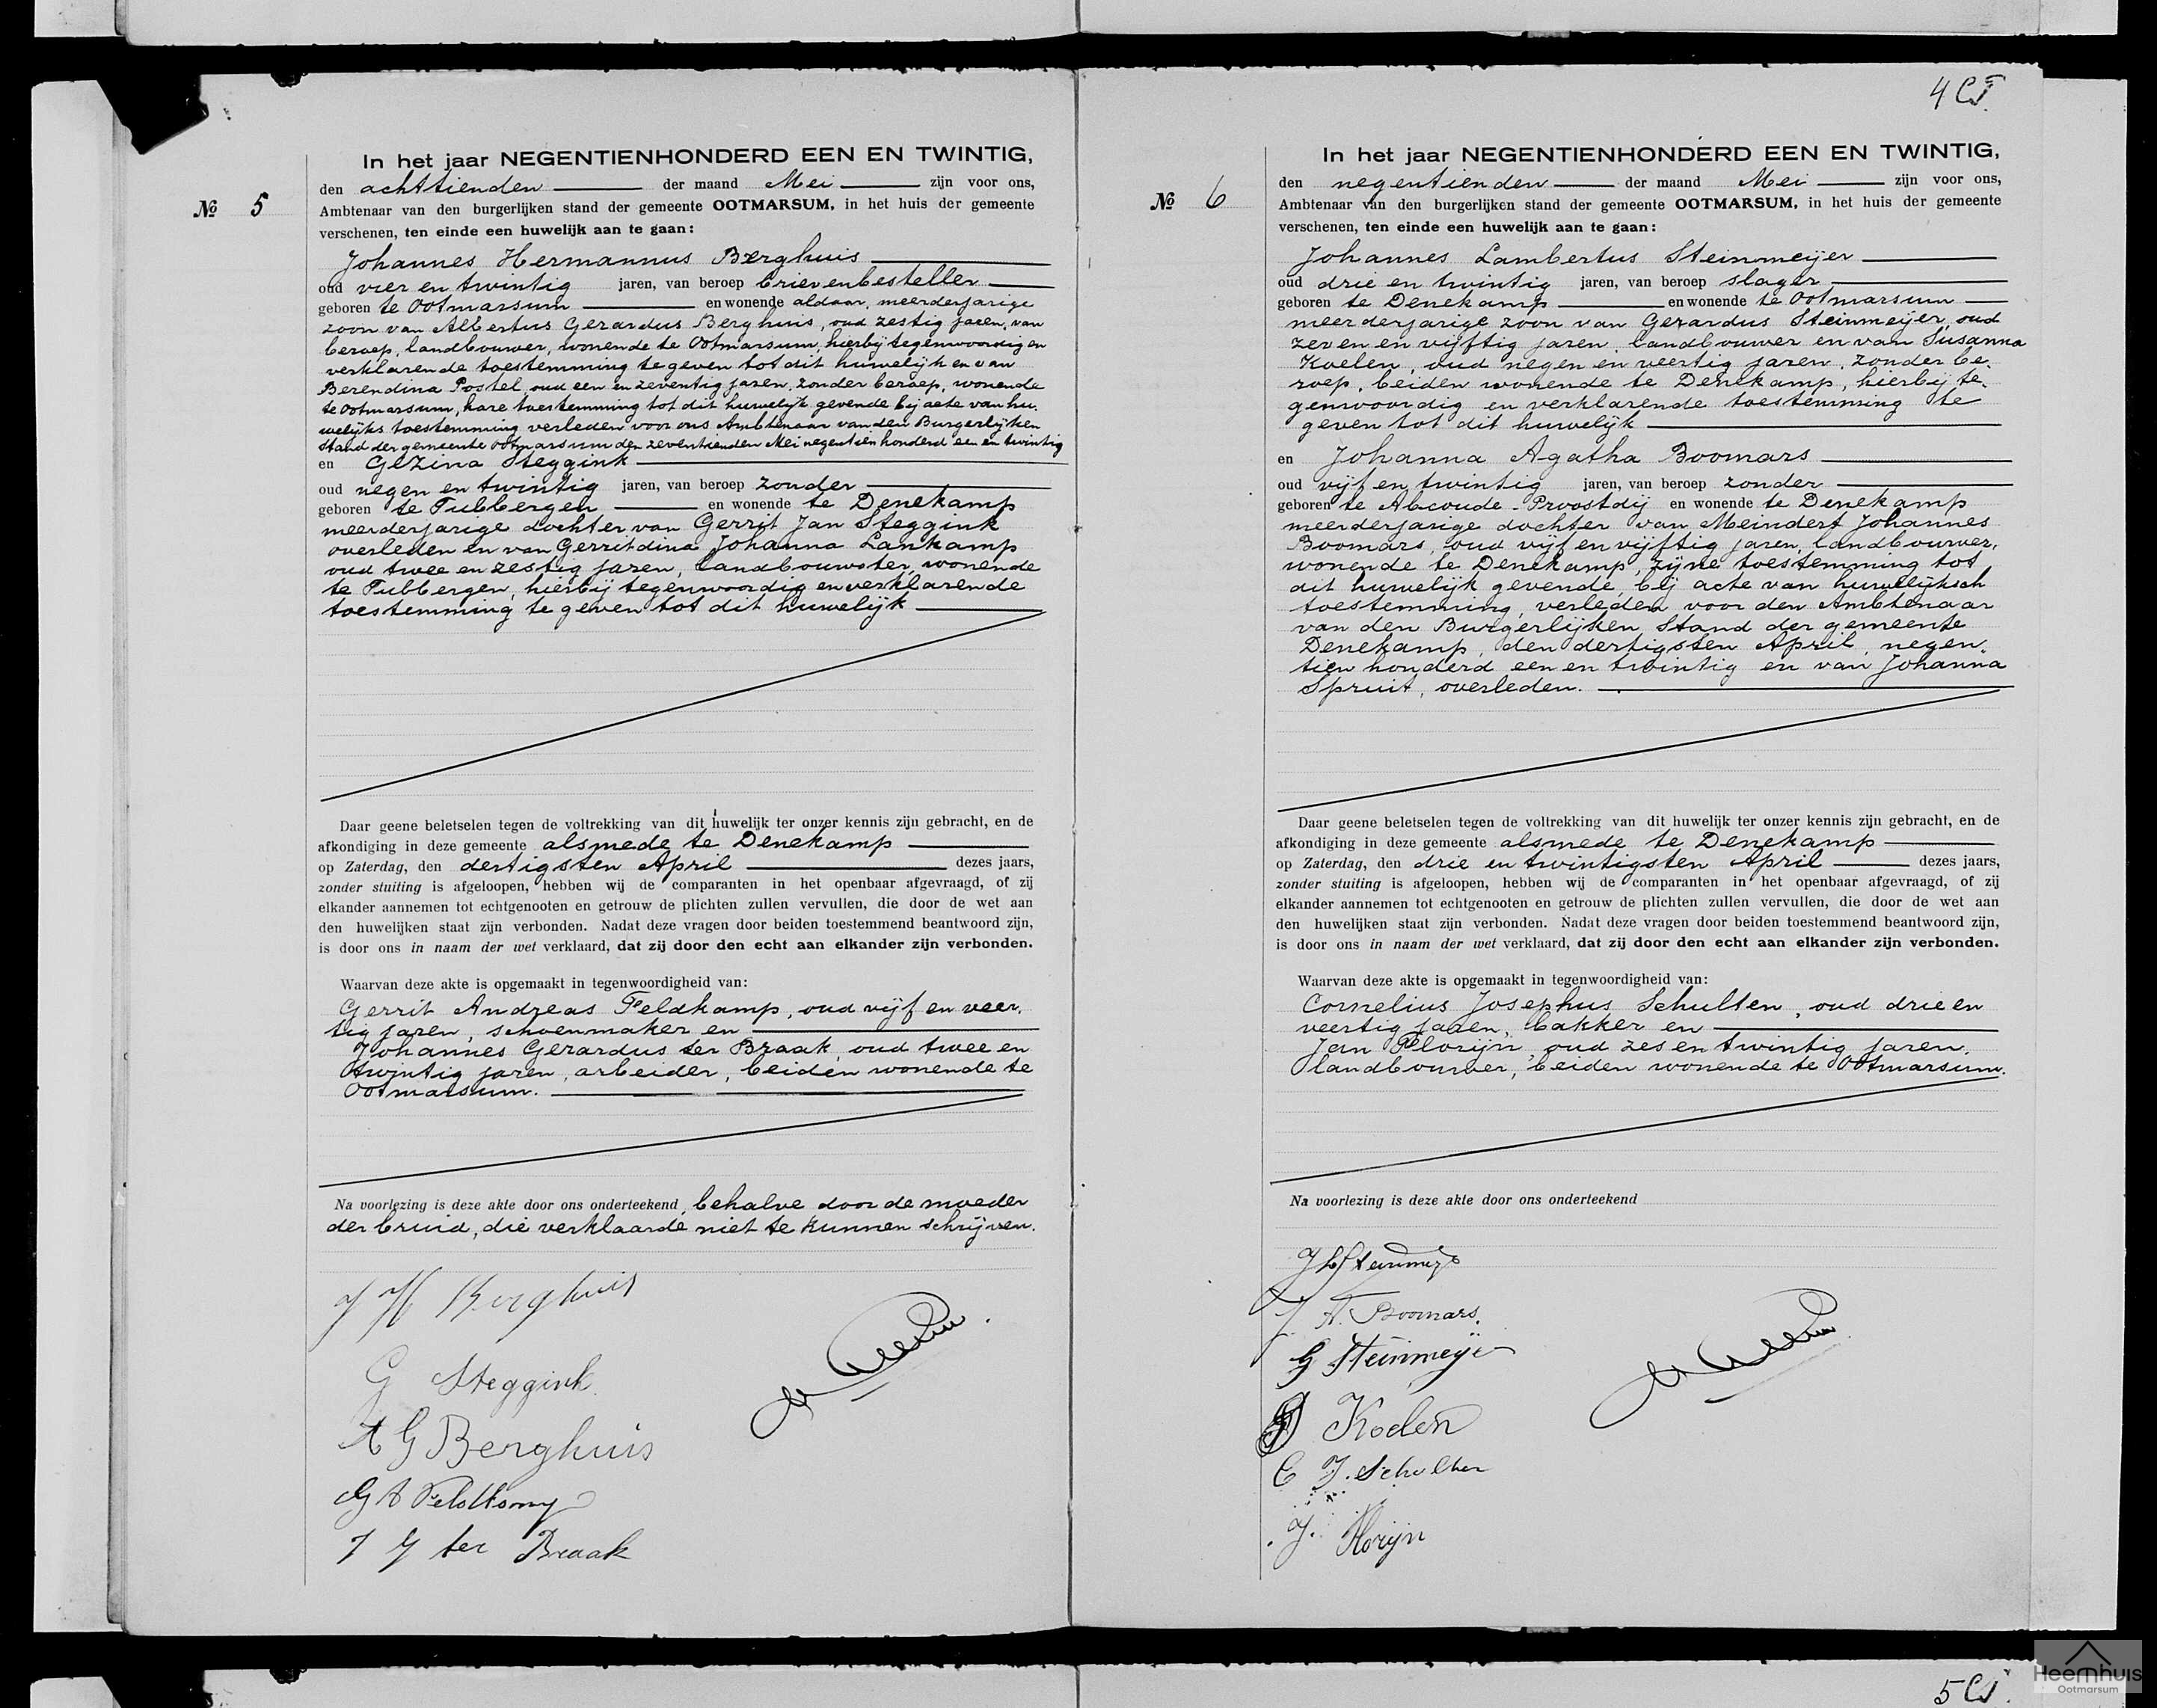 4 CT.
In het jaar NEGENTIENHONDERD EEN EN TWINTIG,
den achttienden der maand Mei zijn voor ons,
№ 5
Ambtenaar van den burgerlijken stand der gemeente OOTMARSUM, in het huis der gemeente
verschenen, ten einde een huwelijk aan te gaan:
Johannes Hermannus Berghuis
oud vier en twintig jaren, van beroep brievenbesteller
geboren te Ootmarsum en wonende aldaar, meerderjarige
zoon van Albertus Gerardus Berghuis, oud zestig jaren, van
beroep, landbouwer, wonende te Ootmarsum, hierbij tegenwoordig en
verklarende toestemming te geven tot dit huwelijk en van
Berendina Postel oud een en zeventig jaren, zonder beroep, wonende
te Ootmarsum, hare toestemming tot dit huwelijk gevende bij acte van hu-
welijks toestemming verleden voor ons Ambtenaar van den Burgerlijken
Stand der gemeente Ootmarsum den zeventienden Mei negentien honderd een en twintig
en Gezina Steggink
oud negen en twintig jaren, van beroep zonder
geboren te Tubbergen en wonende te Denekamp
meerderjarige dochter van Gerrit Jan Steggink
overleden en van Gerritdina Johanna Lankamp
oud twee en zestig jaren, landbouwster, wonende
te Tubbergen, hierbij tegenwoordig en verklarende
toestemming te geven tot dit huwelijk
Daar geene beletselen tegen de voltrekking van dit huwelijk ter onzer kennis zijn gebracht, en de
afkondiging in deze gemeente alsmede te Denekamp
op Zaterdag, den dertigsten April dezes jaars,
zonder stuiting is afgeloopen, hebben wij de comparanten in het openbaar afgevraagd, of zij
elkander aannemen tot echtgenooten en getrouw de plichten zullen vervullen, die door de wet aan
den huwelijken staat zijn verbonden. Nadat deze vragen door beiden toestemmend beantwoord zijn,
is door ons in naam der wet verklaard, dat zij door den echt aan elkander zijn verbonden.
Waarvan deze akte is opgemaakt in tegenwoordigheid van:
Gerrit Andreas Feldkamp, oud vijf en veer-
tig jaren, schoenmaker en
Johannes Gerardus ter Braak, oud twee en
twintig jaren, arbeider, beiden wonende te
Ootmarsum.
Na voorlezing is deze akte door ons onderteekend, behalve door de moeder
der bruid, die verklaarde niet te kunnen schrijven.
J H Berghuis
G Steggink.
A G Berghuis
G A Feldkamp
J G ter Braak
In het jaar NEGENTIENHONDERD EEN EN TWINTIG,
den negentienden der maand Mei zijn voor ons,
№ 6
Ambtenaar van den burgerlijken stand der gemeente OOTMARSUM, in het huis der gemeente
verschenen, ten einde een huwelijk aan te gaan:
Johannes Lambertus Steinmeijer
oud drie en twintig jaren, van beroep slager,
geboren te Denekamp en wonende te Ootmarsum
meerderjarige zoon van Gerardus Steinmeijer, oud
zeven en vijftig jaren, landbouwer en van Susanna
Koelen, oud negen en veertig jaren, zonder be-
roep, beiden wonende te Denekamp, hierbij te-
genwoordig en verklarende toestemming te
geven tot dit huwelijk
en Johanna Agatha Boomars
oud vijf en twintig jaren, van beroep zonder
geboren te Abcoude-Proostdij en wonende te Denekamp
meerderjarige dochter van Meindert Johannes
Boomars, oud vijf en vijftig jaren, landbouwer,
wonende te Denekamp, zijne toestemming tot
dit huwelijk gevende, bij acte van huwelijksch
toestemming, verleden voor den Ambtenaar
van den Burgerlijken Stand der gemeente
Denekamp, den dertigsten April, negen-
tien honderd een en twintig en van Johanna
Spruit, overleden.
Daar geene beletselen tegen de voltrekking van dit huwelijk ter onzer kennis zijn gebracht, en de
afkondiging in deze gemeente alsmede te Denekamp
op Zaterdag, den drie en twintigsten April dezes jaars,
zonder stuiting is afgeloopen, hebben wij de comparanten in het openbaar afgevraagd, of zij
elkander aannemen tot echtgenooten en getrouw de plichten zullen vervullen, die door de wet aan
den huwelijken staat zijn verbonden. Nadat deze vragen door beiden toestemmend beantwoord zijn,
is door ons in naam der wet verklaard, dat zij door den echt aan elkander zijn verbonden.
Waarvan deze akte is opgemaakt in tegenwoordigheid van:
Cornelius Josephus Schulten, oud drie en
veertig jaren, bakker en
Jan Florijn, oud zes en twintig jaren,
landbouwer, beiden wonende te Ootmarsum.
Na voorlezing is deze akte door ons onderteekend
J L Steinmeijer
J. A. Boomars.
G Steinmeijer
S Koelen
C J. Schulten
J. Florijn
5 CT.
Heemhuis
Ootmarsum